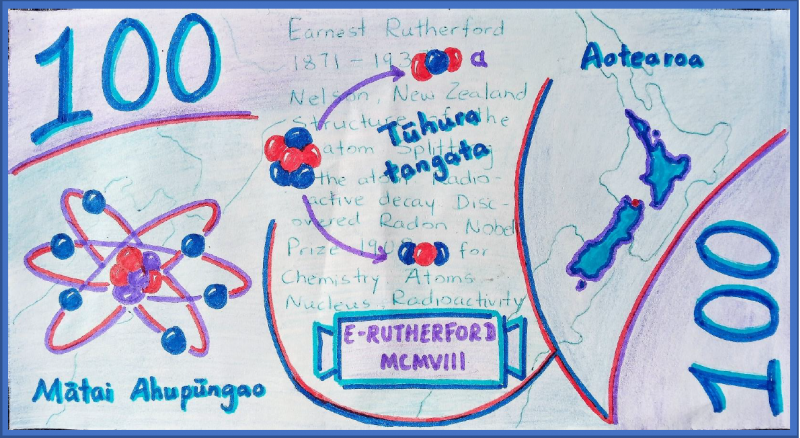 100
Earnest Rutherford
1871 - 193
α
Nelson, New Zealand
Structure of the
Tūhura
tangata
atom Splitting
the atom Radio-
active decay Disc-
overed Radon Nobel
Prize 1908 for
Chemistry Atoms
Nucleus Radioactivity
E-RUTHERFORD
MCMVIII
Mātai Ahupūngao
Aotearoa
100